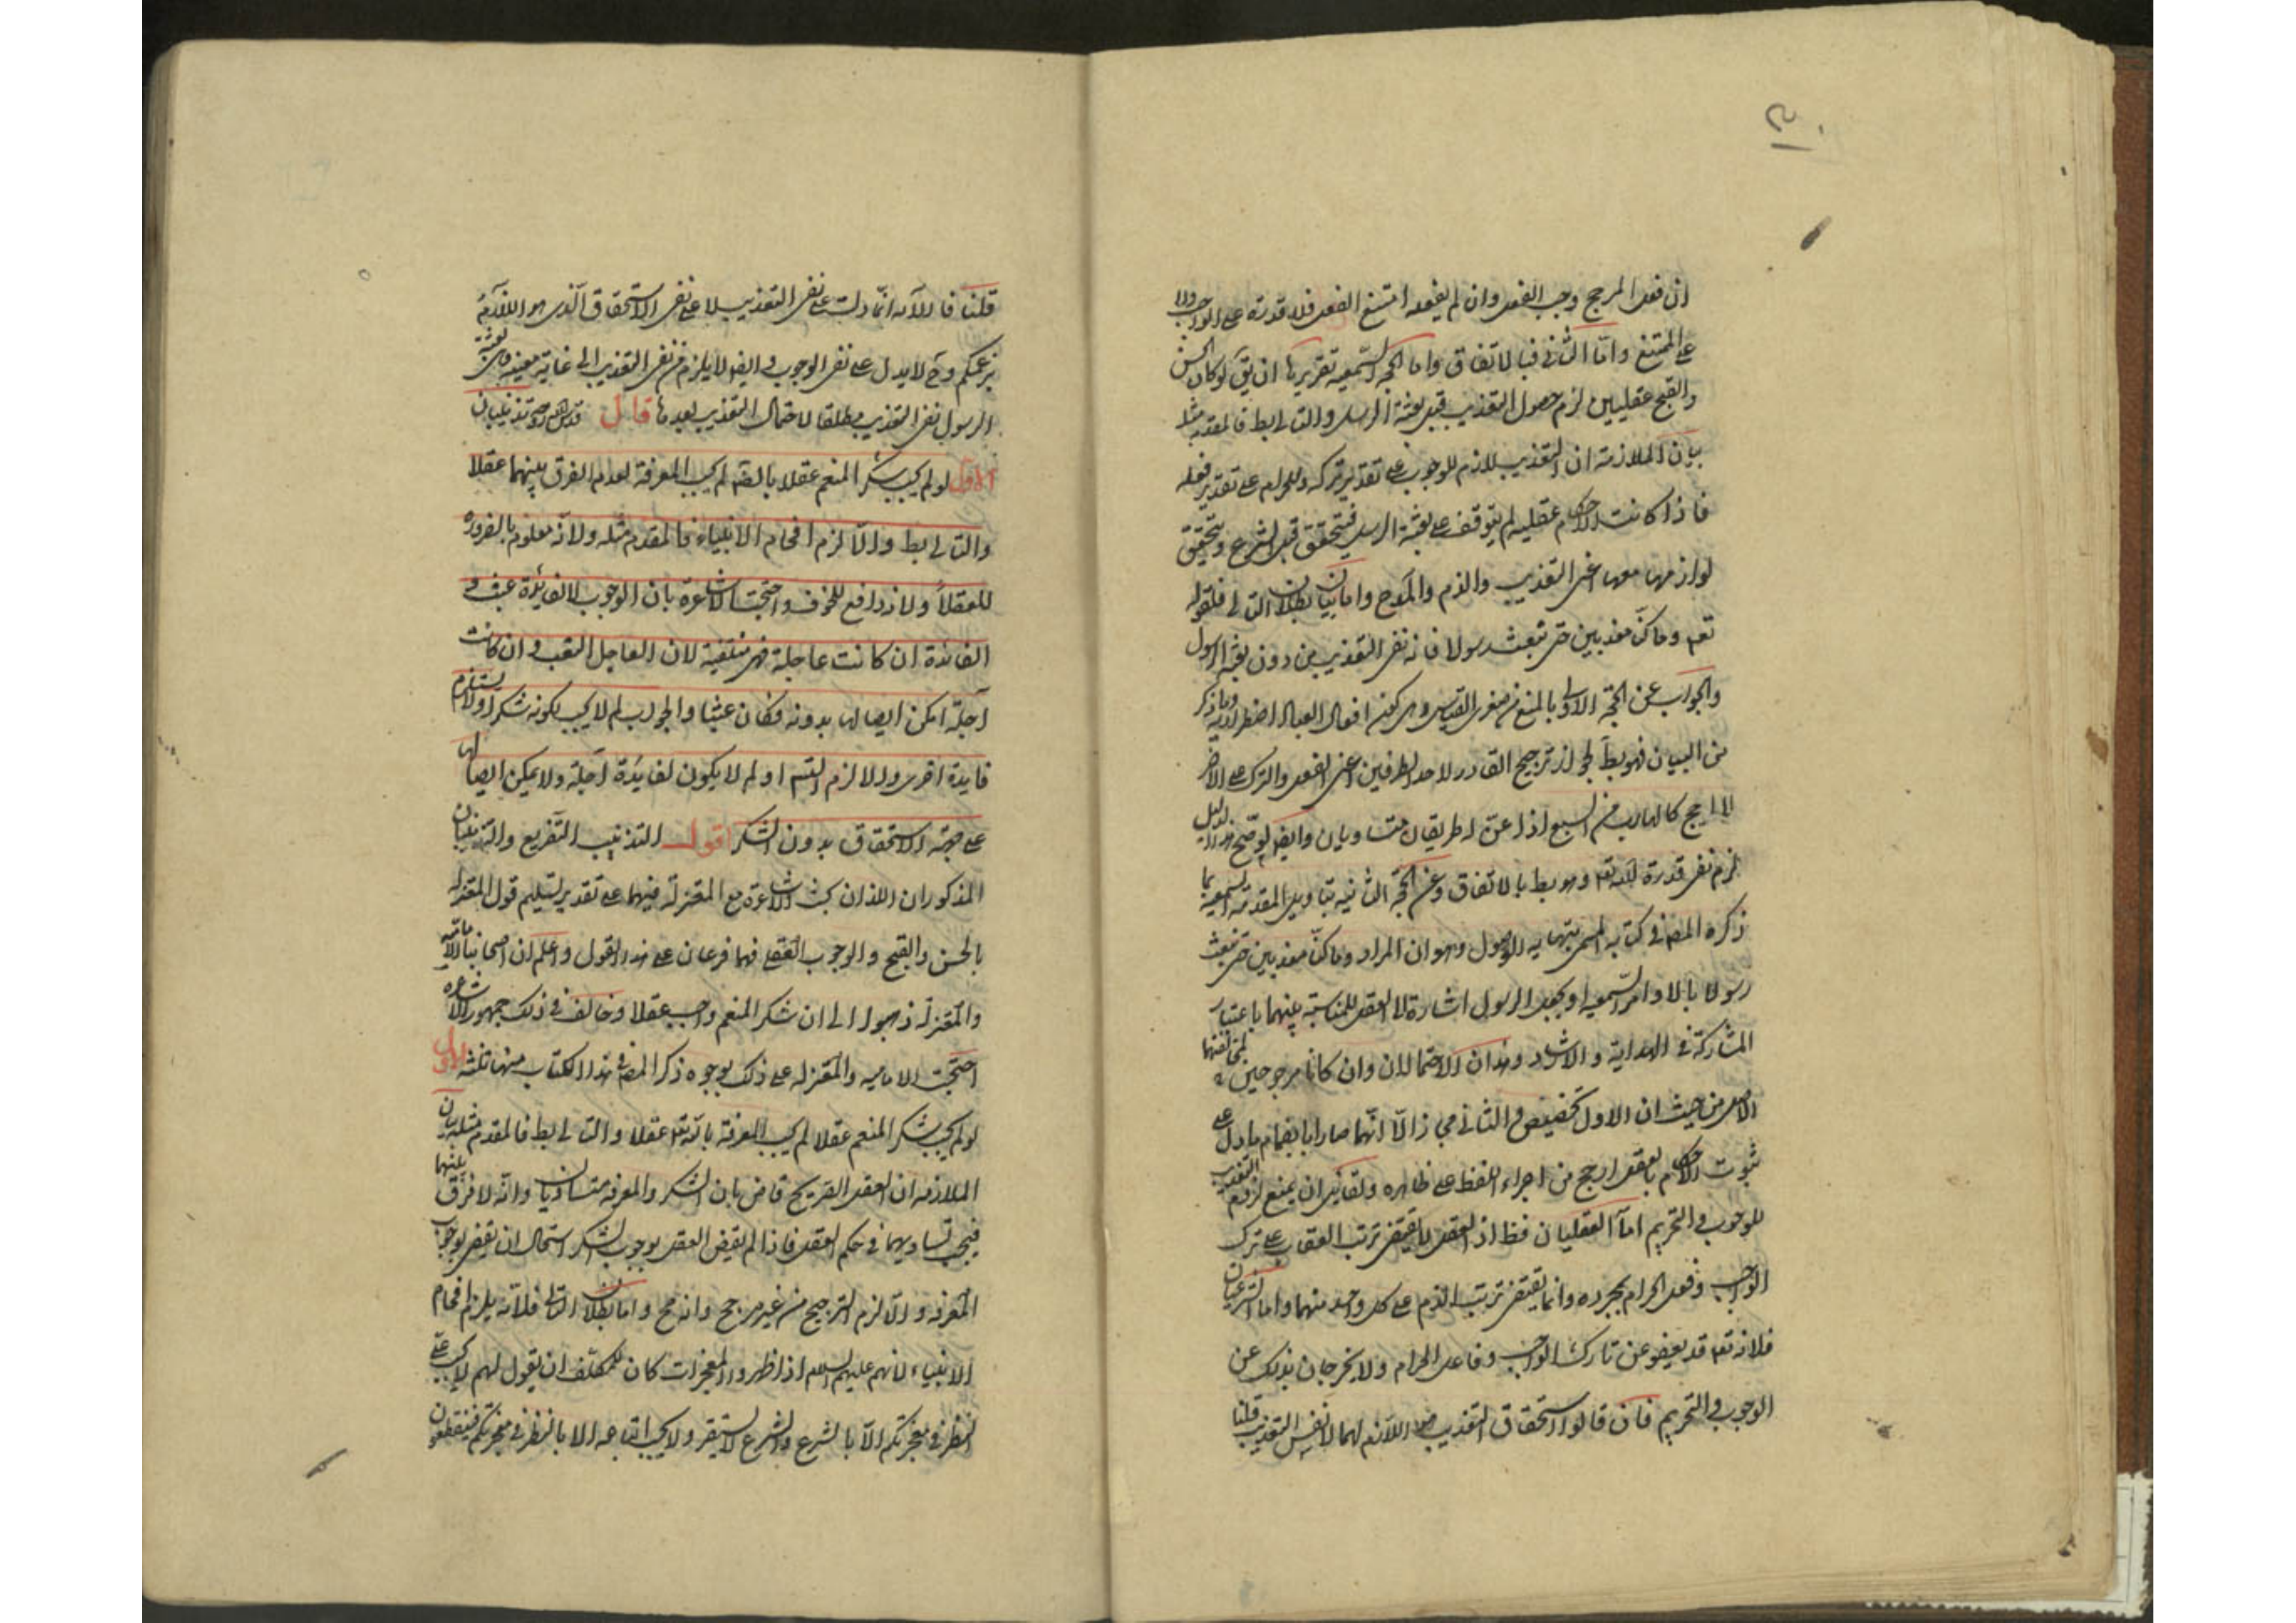 ان فعل المرجح وجب الفعل وان لم يفعله امتنع الفعل فلا قدرة على الواجب ولا
على الممتنع واما الثاني فبالاتفاق واما الحجة السمعية تقريرها ان يق لو كان الحسن
والقبح عقليين لزم حصول التعذيب قبل بعثة الرسل والتالي بط فالمقدم مثله
بيان الملازمة ان التعذيب لازم للوجوب على تقدير تركه وللحرام على تقدير فعله
فاذا كانت الاحكام عقلية لم يتوقف على بعثة الرسل فيتحقق قبل الشرع ويتحقق
لوازمها معها اعني التعذيب والذم والمدح واما بيان بطلان التالي فلقوله
تعه وما كنا معذبين حتى نبعث رسولا فانه نفى التعذيب من دون بعثة الرسول
والجواب عن الحجة الاولى بالمنع من صغرى القياس وهي كون افعال العباد اضطرارية وما ذكر
من البيان فهو بط لجواز ترجيح القادر لاحد الطرفين اعني الفعل والترك على الاخر
لا لمرجح كالهارب من السبع اذا عن له طريقان متساويان وايض لو صح هذا الدليل
لزم نفي قدرة الله تعه وهو بط بالاتفاق وعن الحجة الثانية بتاويل المقدمة السمعية بما
ذكره المص في كتابه المسمى بنهاية الوصول وهو ان المراد وما كنا معذبين حتى نبعث
رسولا بالاوامر السمعية او بجعل الرسول اشارة الى العقل للمناسبة بينهما باعتبار
المشاركة في الهداية والارشاد وهذان الاحتمالان وان كانا مرجوحين لمخالفتهما
الاصل من حيث ان الاول تخصيص والثاني مجاز الا انهما صارا بانضمام ما دل على
ثبوت الاحكام بالعقل ارجح من اجراء اللفظ على ظاهره ولقائل ان يمنع لزوم التعذيب
للوجوب والتحريم اما العقليان فظ اذ العقل لا يقتضي ترتب العقاب على ترك
الواجب وفعل الحرام بمجرده وانما يقتضي ترتب الذم على كل واحد منهما واما الشرعيان
فلانه تعه قد يعفو عن تارك الواجب وفاعل الحرام ولا يخرجان بذلك عن
الوجوب والتحريم فان قالوا استحقاق التعذيب هو اللازم لهما لا نفس التعذيب قلنا
قلنا فالآية انما دلت على نفي التعذيب لا على نفي الاستحقاق الذي هو اللازم
بزعمكم وح لا يدل على نفي الوجوب وايض لا يلزم من نفي التعذيب الى غاية معينة وهي بعثة
الرسول نفي التعذيب مطلقا لاحتمال التعذيب بعدها قال قدس الله روحه تذنيبان
الاول لو لم يجب شكر المنعم عقلا بالضرورة لم يجب المعرفة لعدم الفرق بينهما عقلا
والتالي بط والا لزم افحام الانبياء فالمقدم مثله ولانه معلوم بالضرورة
للعقلاء ولانه دافع للخوف واحتجت الاشاعرة بان الوجوب لا لفائدة عبث و
الفائدة ان كانت عاجلة فهي منتفية لان العاجل التعب وان كانت
آجلة امكن ايصالها بدونه فكان عبثا والجواب لم لا يجب لكونه شكرا ولا يستلزم
فايدة اخرى والا لزم التسلسل او لم لا يكون لفايدة آجلة ولا يمكن ايصالها
على جهة الاستحقاق بدون الشكر اقول التذنيب التفريع والتذنيبان
المذكوران اللذان بحث الاشاعرة مع المعتزلة فيهما على تقدير تسليم قول المعتزلة
بالحسن والقبح والوجوب العقلي فهما فرعان على هذا القول واعلم ان اصحابنا الامامية
والمعتزلة ذهبوا الى ان شكر المنعم واجب عقلا وخالف في ذلك جمهور الاشاعرة
احتجت الامامية والمعتزلة على ذلك بوجوه ذكر المص في هذا الكتاب منها ثلثة الاول
لو لم يجب شكر المنعم عقلا لم يجب المعرفة بالله تعه عقلا والتالي بط فالمقدم مثله بيان
الملازمة ان العقل الصريح قاض بان الشكر والمعرفة متساويان وانه لا فرق بينهما
فيجب تساويهما في حكم العقل فاذا لم يقض العقل بوجوب الشكر استحال ان يقضي بوجوب
المعرفة والا لزم الترجيح من غير مرجح وانه مح واما بطلان التالي فلانه يلزم افحام
الانبياء لانهم عليهم السلام اذا اظهروا المعجزات كان للمكلف ان يقول لهم لا يجب علي
النظر في معجزتكم الا بالشرع والشرع لا يستقر ولا يجب اتباعه الا بالنظر في معجزتكم فينقطعون